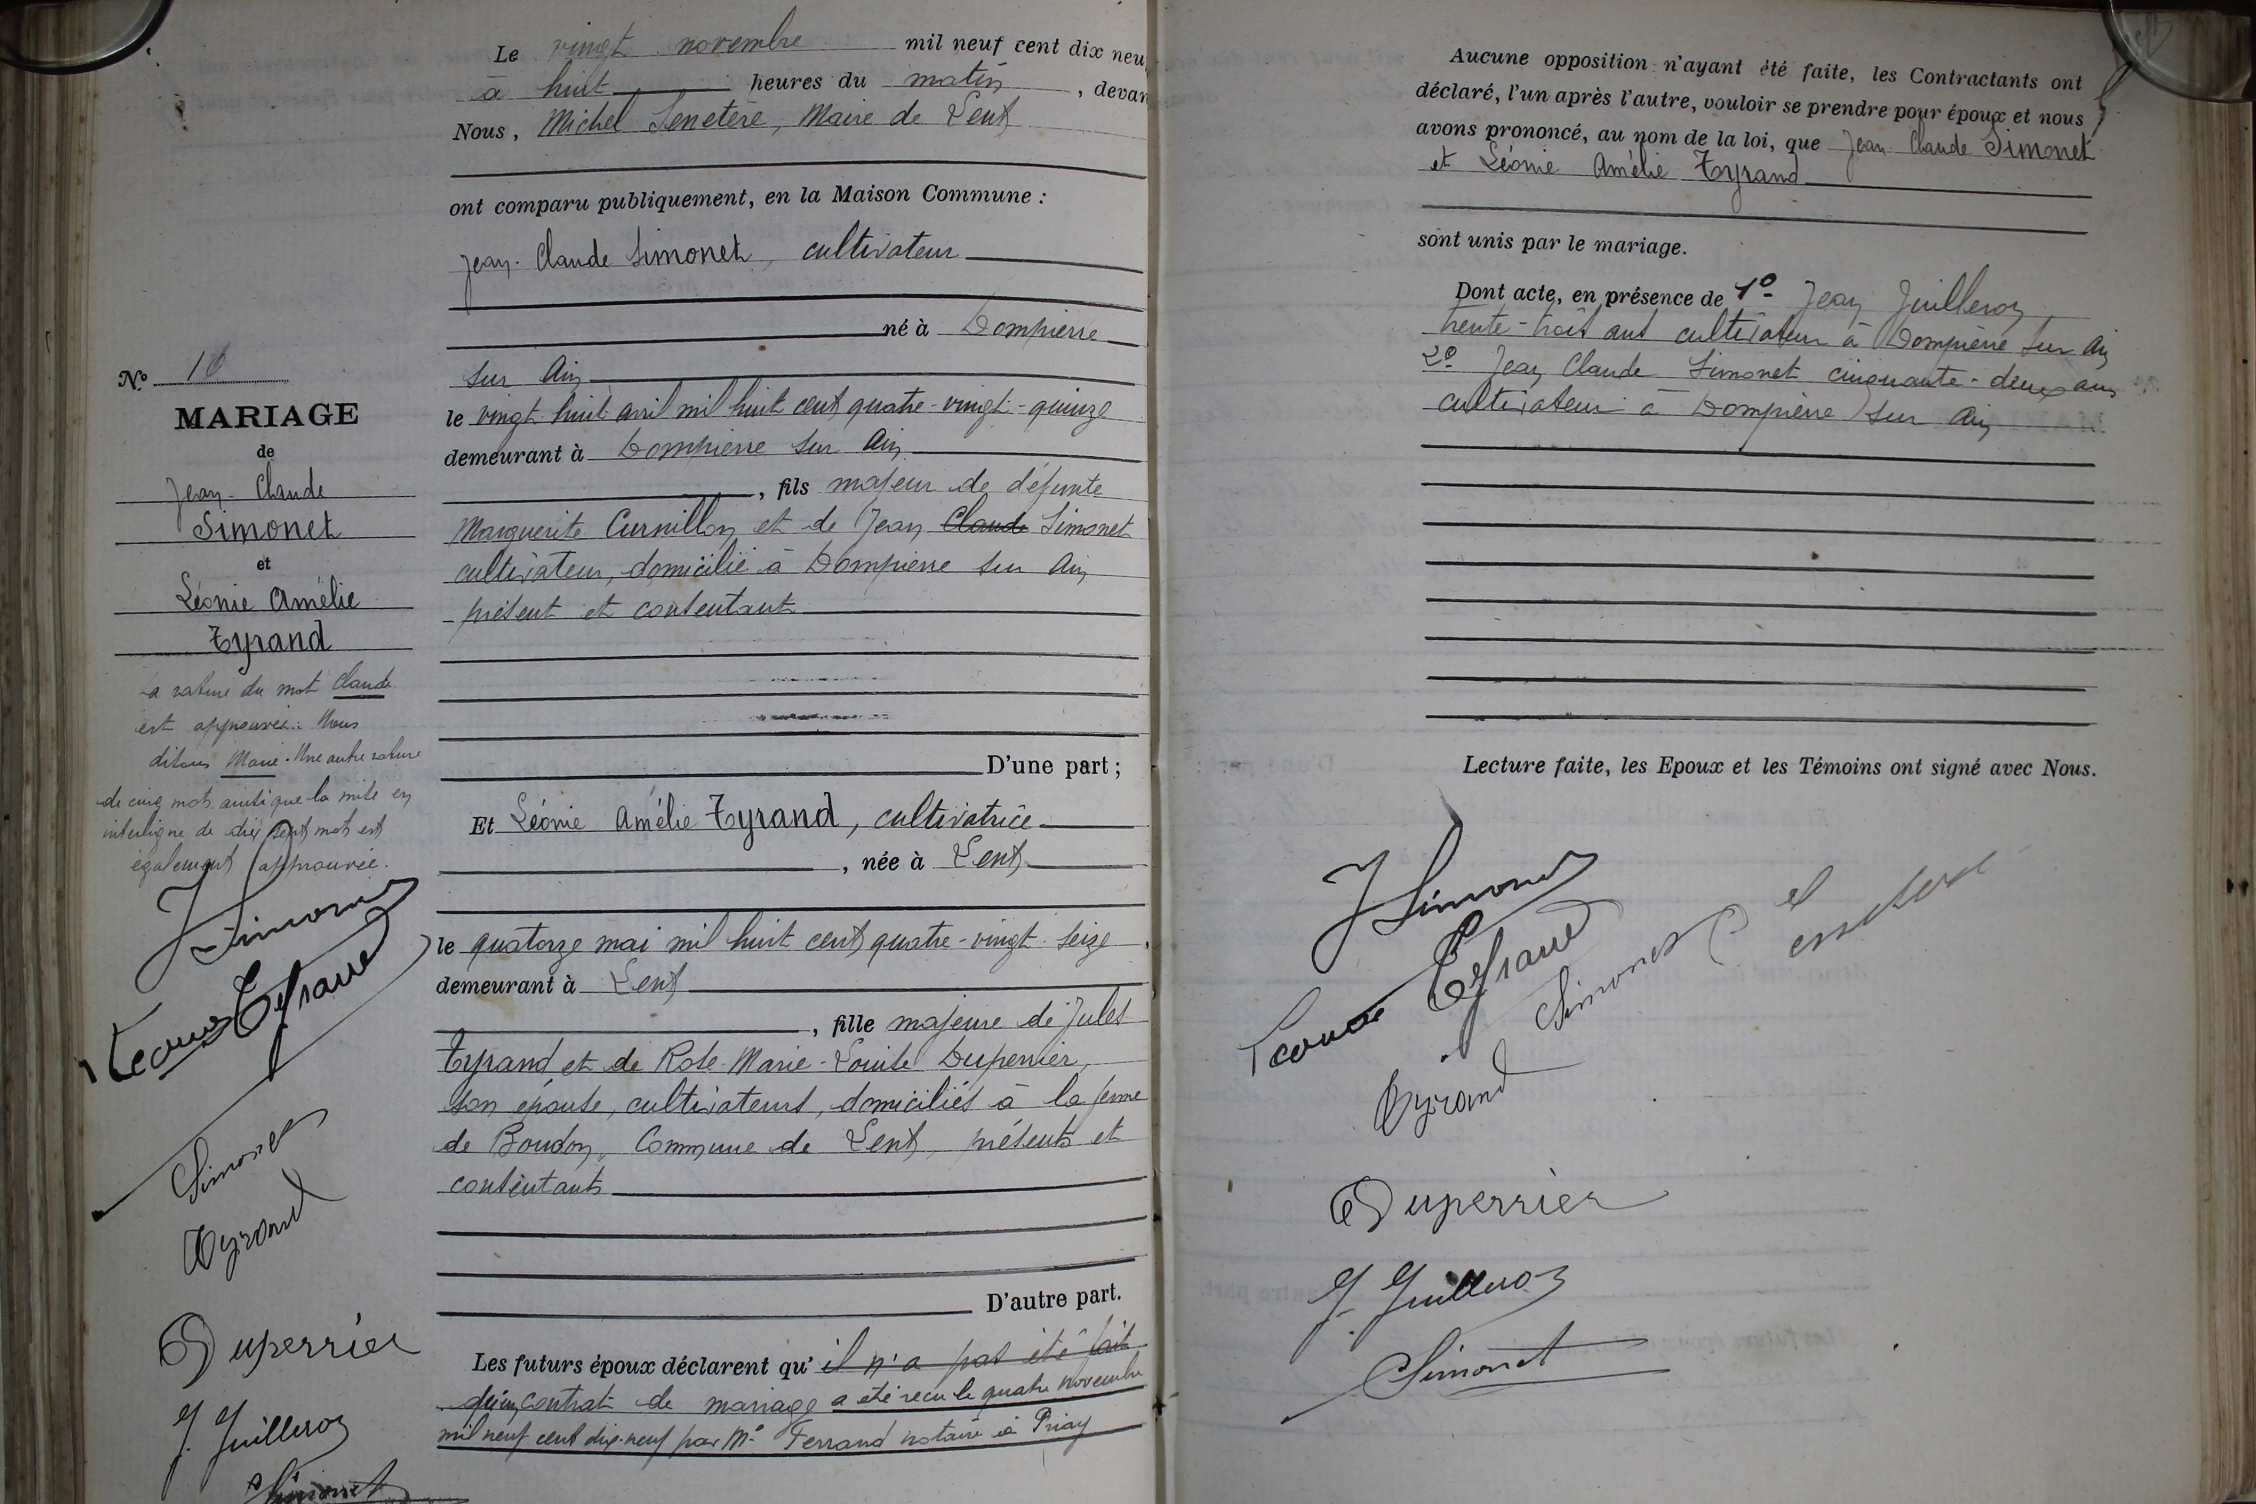 N.º 16
MARIAGE
de
Jean-Claude
Simonet
et
Léonie Amélie
Tyrand
La rature du mot Claude
est approuvée. Nous
disons Marie. Une autre rature
de cinq mots ainsi que la mise en
interligne de dix sept mots est
également approuvée.
J Simonet
Léonie Tyrand
Simonet
Tyrand
Duperrier
J. Juilleron
Simonet
Le vingt novembre mil neuf cent dix neuf
à huit heures du matin, devan
Nous, Michel Senetère, Maire de Lent
ont comparu publiquement, en la Maison Commune :
Jean-Claude Simonet, cultivateur
né à Dompierre
sur Ain
le vingt huit avril mil huit cent quatre-vingt-quinze
demeurant à Dompierre sur Ain
, fils majeur de défunte
Marguerite Curnillon et de Jean Claude Simonet
cultivateur, domicilié à Dompierre sur Ain
présent et consentant
D'une part ;
Et Léonie Amélie Tyrand, cultivatrice
, née à Lent
le quatorze mai mil huit cent quatre-vingt-seize
demeurant à Lent
, fille majeure de Jules
Tyrand et de Rose-Marie-Louise Duperrier,
son épouse, cultivateurs, domiciliés à la ferme
de Boudon, Commune de Lent, présents et
consentants
D'autre part.
Les futurs époux déclarent qu' il n'a pas été fait
contrat de mariage a été reçu le quatre novembre
mil neuf cent dix-neuf par Me Ferrand notaire à Priay
Aucune opposition n'ayant été faite, les Contractants ont
déclaré, l'un après l'autre, vouloir se prendre pour époux et nous
avons prononcé, au nom de la loi, que Jean Claude Simonet
et Léonie Amélie Tyrand
sont unis par le mariage.
Dont acte, en présence de 1º Jean Juilleron,
trente-trois ans cultivateur à Dompierre sur Ain
2º Jean Claude Simonet cinquante-deux ans
cultivateur à Dompierre sur Ain
Lecture faite, les Epoux et les Témoins ont signé avec Nous.
J Simonet
Léonie Tyrand
Simonet
Tyrand
Duperrier
J. Juilleron
Simonet